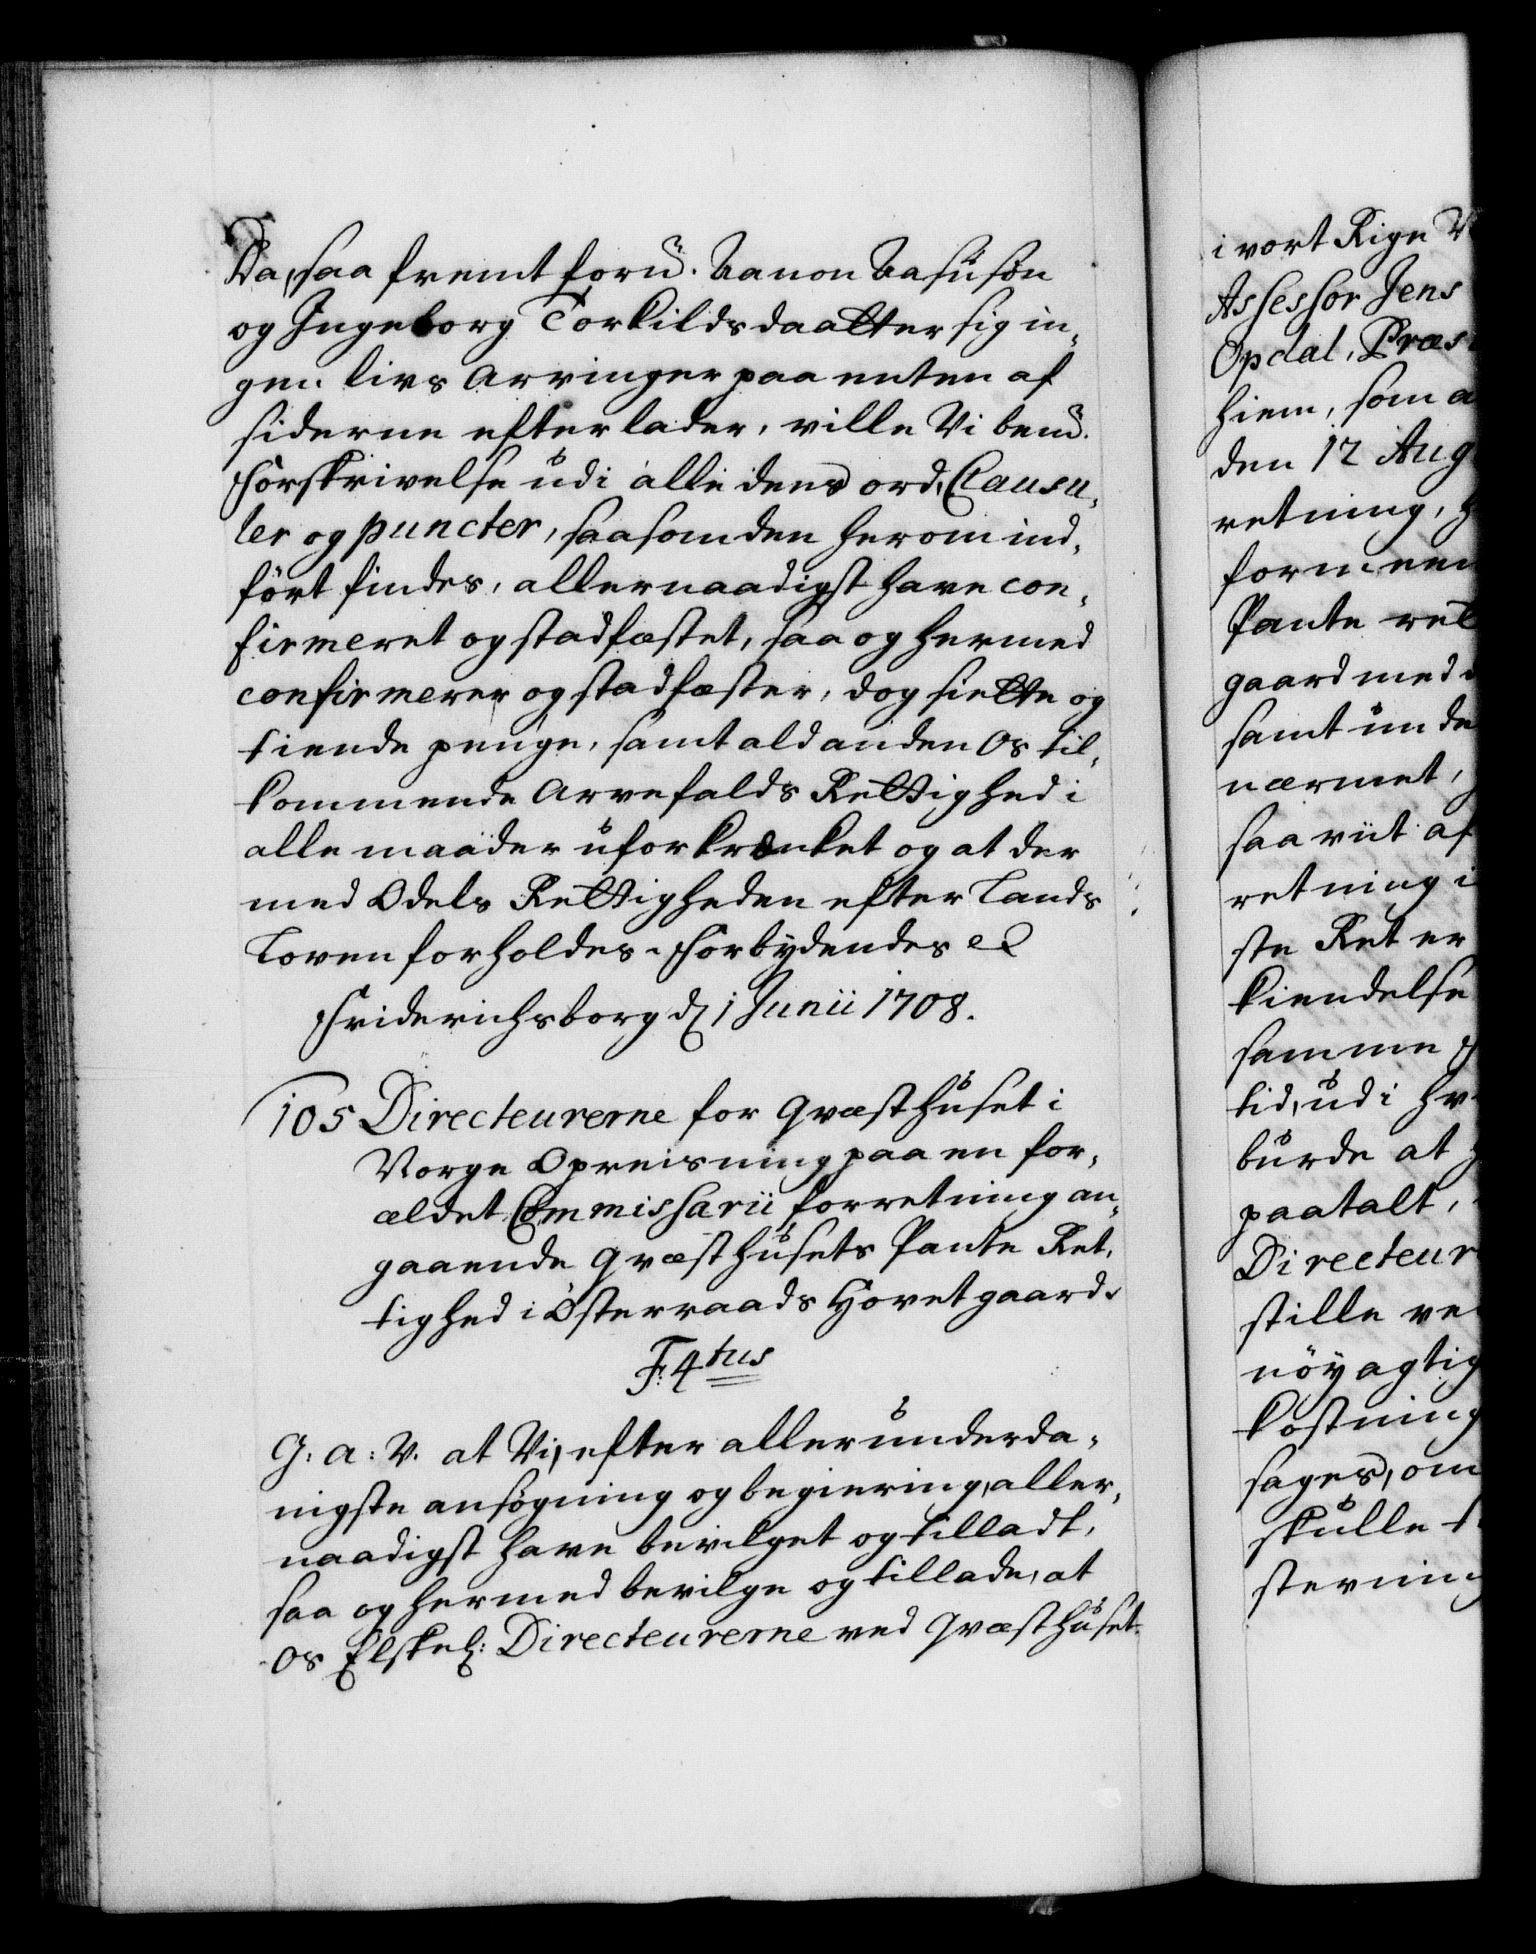 Da, saa fremt forn. Aanon Aasusøn
og Ingeborg Torkildsdaatter sig in,
gen livs Arvinger paa enten af
siderne efterlader, ville Vi bem.
Forskrivelse udi alle dens ord, Clausu,
ler og puncter, saasom den herom ind,
ført findes, allernaadigst have con,
firmeret og stadfæstet, saa og hermed
confirmerer og stadfæster, dog siette og
tiende penge, samt ald anden Os til,
kommende Arvefalds Rettighed i
alle maader uforkrænket og at der
med Odels Rettigheden efter Lands
Loven forholdes. Forbydendes etc
Friderichsborg d. 1 Junii 1708.
105 Directeurerne for Qvæsthuset i
Norge Opreisning paa en for,
ældet Commissarii forretning an,
gaaende Qvæsthusets Pante Ret,
tighed i Østerraads Hovetgaard.
F: 4tus
G: A: V. at Vi, efter allerunderda,
nigste ansøgning og begiering, aller,
naadigst have bevilget og tilladt,
saa og hermed bevilge og tillade, at
Os Elskel: Directeurerne ved Qvæsthuset
i vort Rige
Assessor Jens
Opdal,
hiem, som
den 12 Aug
retning,
formeen
Pante ret
gaard med
samt un de
nærmet,
saa viit af
retning i
ste Ret er
kiendelse
samme
tid, udi
burde at
paatalt,
Directeur
stille
nöyagtig
kostning
sages, om
skulle
sterning